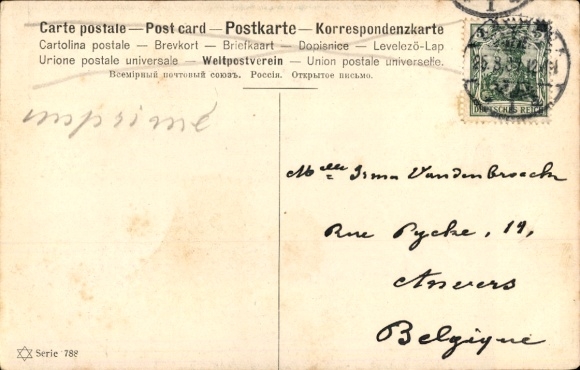 Carte postale — Post card — Postkarte — Korrespondenzkarte
Cartolina postale — Brevkort — Briefkaart — Dopisnice — Levelező-Lap
Urione postale universale — Weltpostverein — Union postale universelle.
Всемірный почтовый союзъ. Россія. Открытое письмо.
imprimé
DEUTSCHES REICH
Melle Irma Vandenbroeck
Rue Pycke, 19,
Anvers
Belgique
Serie 788